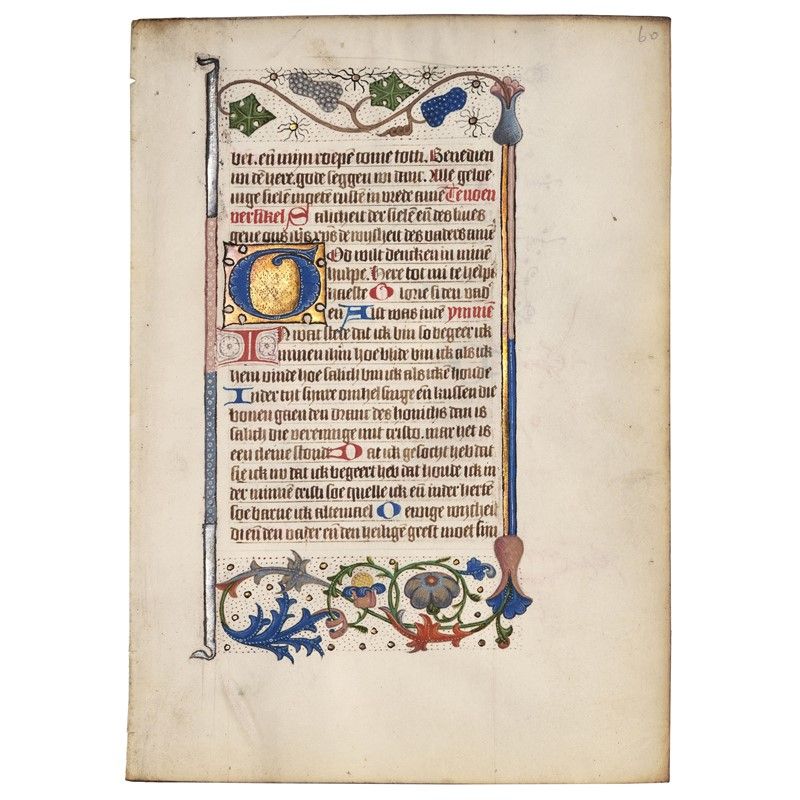 60
bet. en̄ mijn roepē come totti. Benedien
wi dē here. gode seggen wi danc. Alle geloe
uige sielē in gote rustē in vrede amē Te noen
versikel Salicheit der sielē en̄ des liues
geue ons ihūs xp̄s de wijsheit des vaders amē
God wilt dencken in minē
hulpe. Here tot mi te helpē
haeste Glorie si den vad
en Alst was intē ymnus
In wat stede dat ick bin so begeer ick
minnen ihm̄ hoe blide bin ick als ick
hem vinde hoe salich bin ick als ickē houde
Inder tijt
omhelsinge en̄ kussen die
bouen gaen den dranc des honichs dan is
salich die vereninge mit cristo. mar het is
een cleine stonde Dat ick gesocht heb dat
sie ick nv dat ick begeert heb dat houde ick in
der minnē cristi soe quelle ick en̄ inder hertē
soe barne ick altemael O ewige wijsheit
di en̄ den vader en̄ den heilige geest moet sijn